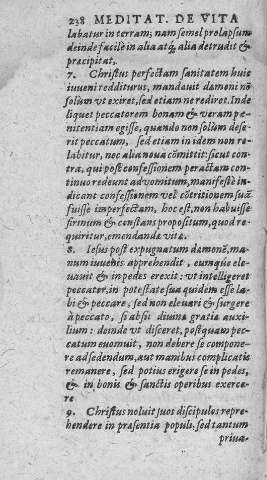 238 MEDITAT. DE VITA
labatur in terram; nam semel prolapsum
deinde facilè in alia atq; alia detrudit &
præcipitat.
7. Christus perfectam sanitatem huic
iuueni redditurus, mandauit dæmoni nō
solum vt exiret, sed etiam ne rediret. Inde
liquet peccatorem bonam & veram pœ-
nitentiam egisse, quando non solùm dese-
rit peccatum, sed etiam in idem non re-
labitur, nec alia noua cōmittit: sicut con-
tra, qui post confessionem peractam con-
tinuo redeunt ad vomitum, manifestè in-
dicant confessionem vel cōtritionem suā
fuisse imperfectam, hoc est, non habuisse
firmum & constans propositum, quod re-
quiritur, emendandæ vitæ.
8. Iesus post expugnatum dæmonē, ma-
num iuuenis apprehendit, eumque ele-
uauit & in pedes erexit: vt intelligeret
peccator, in potestate sua quidem esse la-
bi & peccare, sed non eleuari & surgere
à peccato, si absit diuina gratiæ auxi-
lium: deinde vt disceret, postquam pec-
catum euomuit, non debere se compone-
re ad sedendum, aut manibus complicatis
remanere, sed potius erigere se in pedes,
& in bonis & sanctis operibus exerce-
re
9. Christus noluit suos discipulos repre-
hendere in præsentia populi, sed tantum
priua-